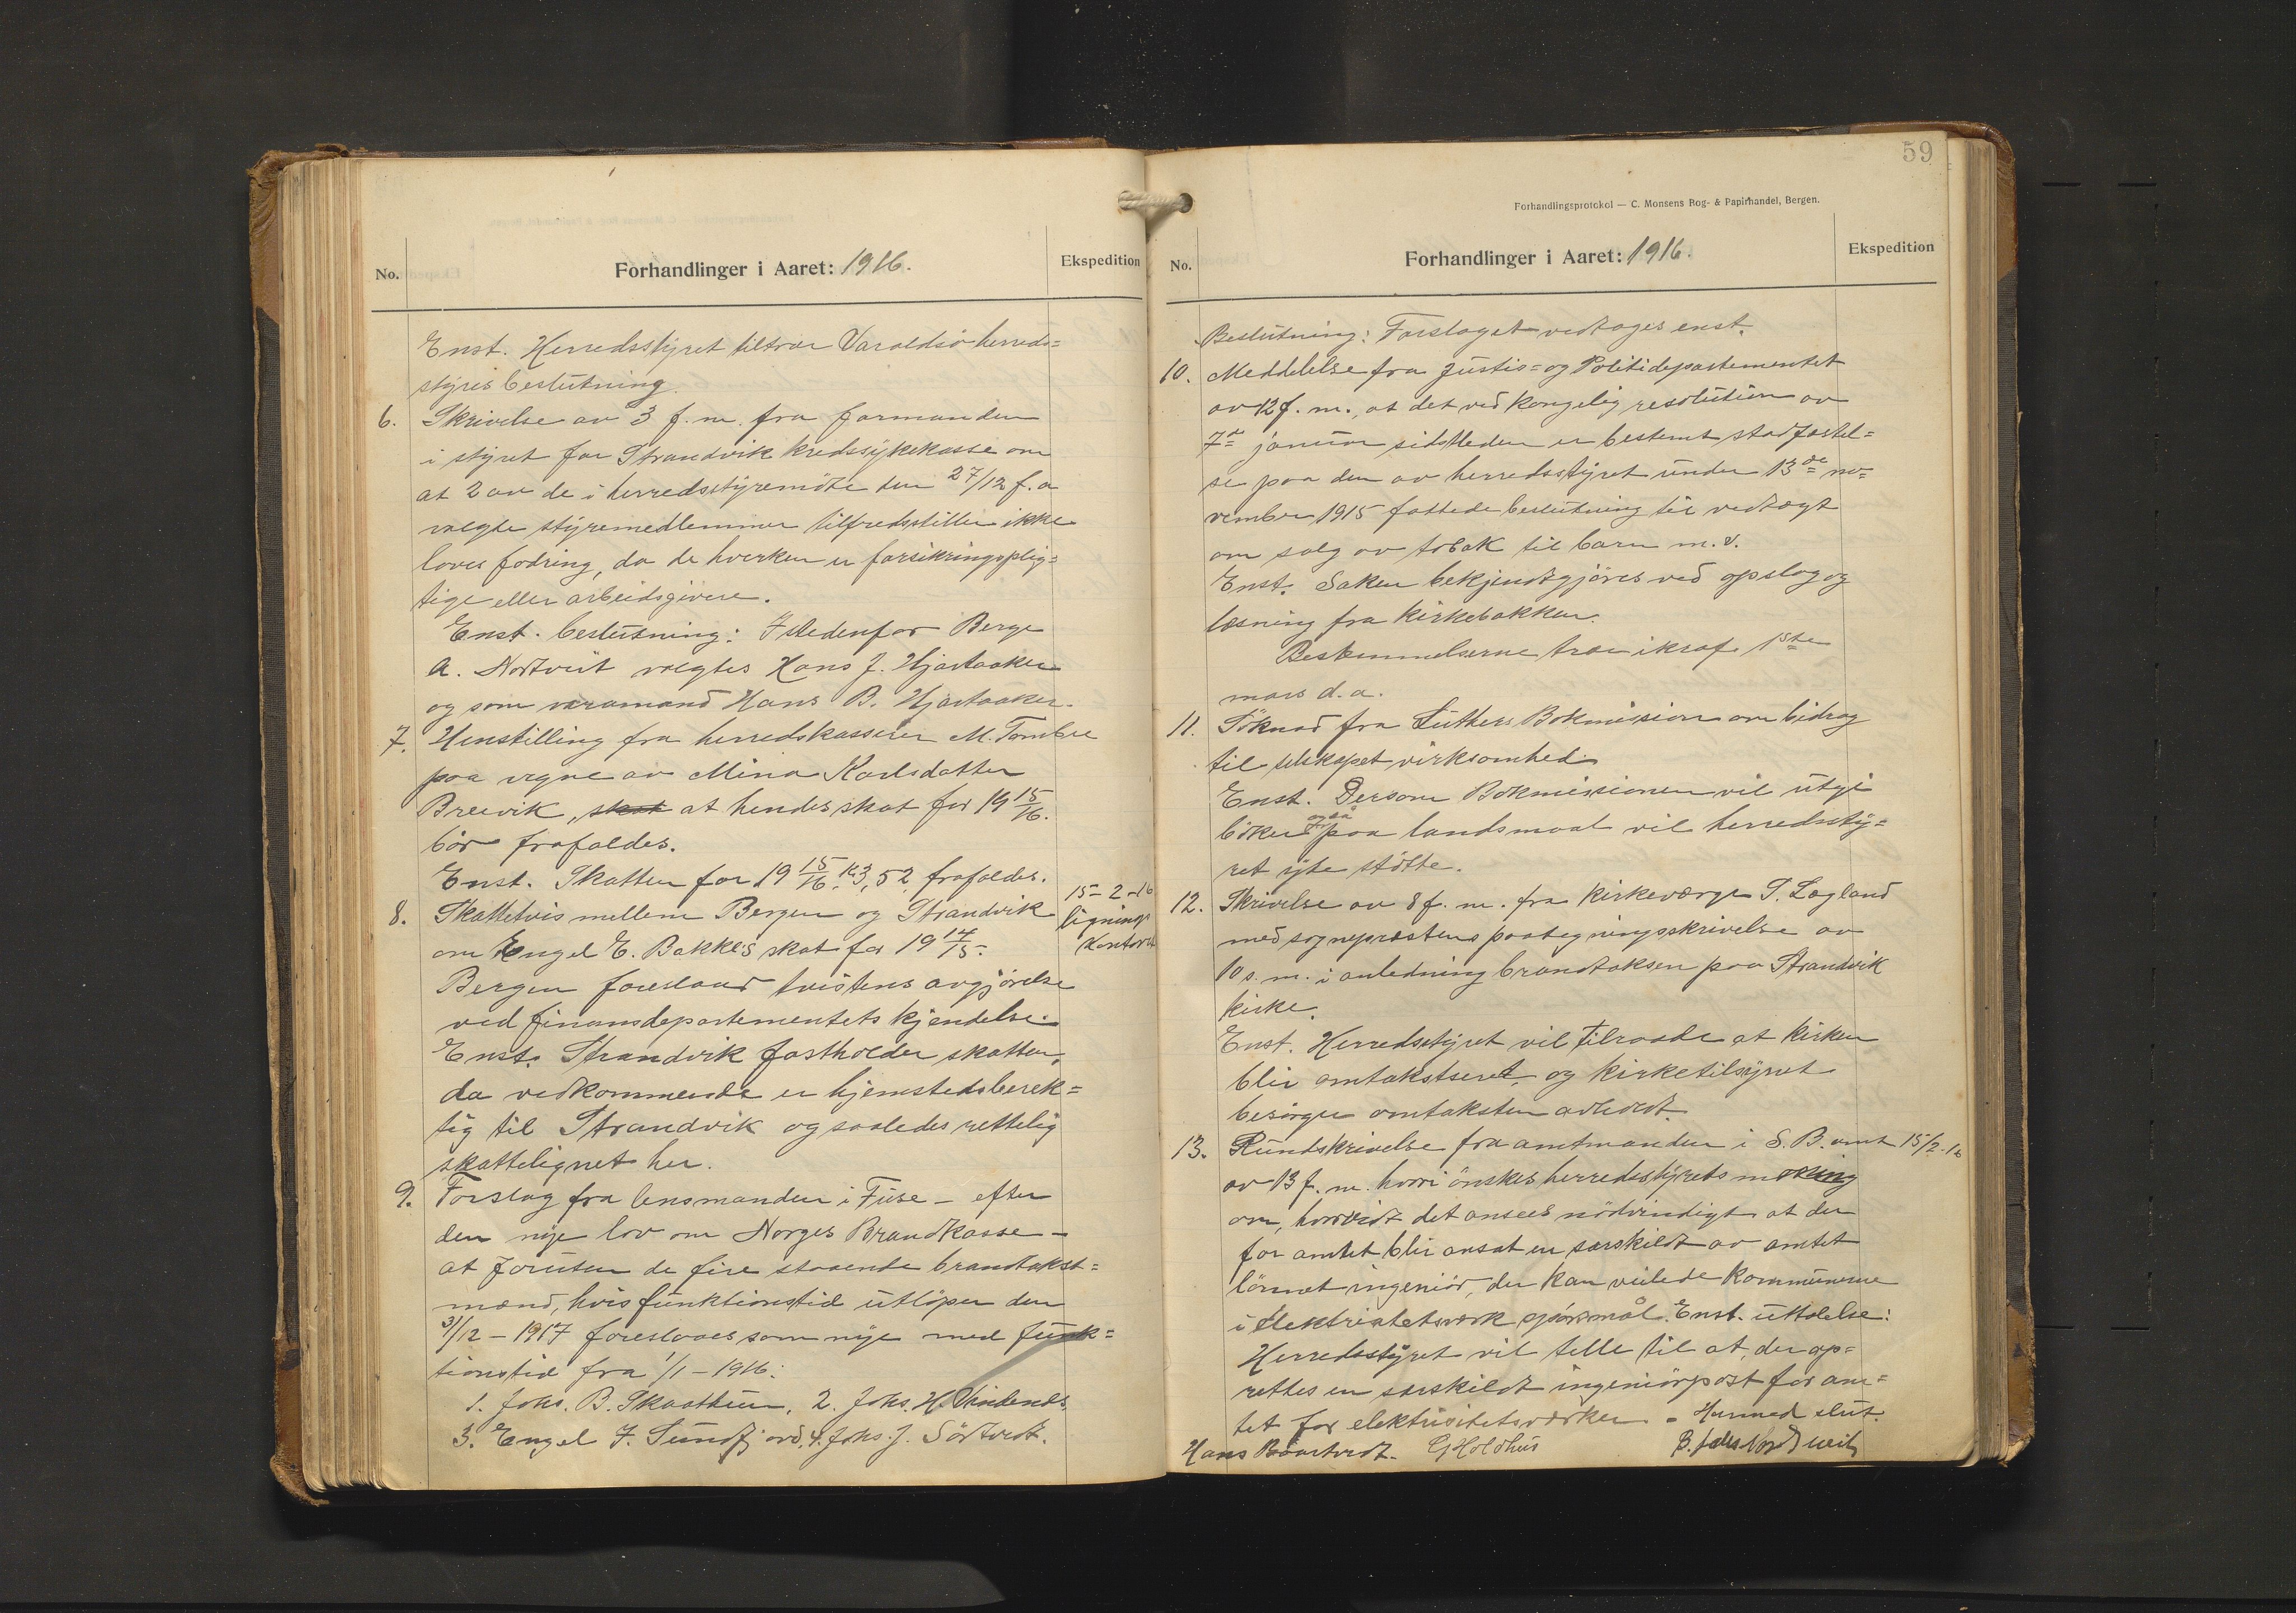 No.
Forhandlinger i Aaret: 1916.
Ekspedition
Enst. Herredsstyret tiltrær Varaldsö herreds=
styres beslutning.
6. Skrivelse av 3 f.m. fra formanden
i styret for Strandvik kredssykekasse om
at 2 av de i herredsstyremöte den 27/12 f.a
valgte styremedlemmer tilfredsstiller ikke
lovens fodring, da de hverken er forsikringsplig=
tige eller arbeidsgivere.
Enst. beslutning: Istedenfor Berge
A. Nortveit valgtes Hans J. Hjartaaker
og som varamand Hans B. Hjartaaker.
7. Henstilling fra herredskasserer M. Tombre
paa vegne av Mina Karlsdatter
Breivik, skat at hendes skat for 19 15/16.
bör frafaldes.
Enst. Skatten for 19 15/16. kr 3,52 frafaldes.
8. Skattetvis mellem Bergen og Strandvik
om Engel E. Bakkes skat for 19 14/15.
15-2-16
lignings
kontoret
Bergen foreslaar tvistens avgjörelse
ved finansdepartementets kjendelse.
Enst. Strandvik fastholder skatten,
da vedkommende er hjemstedsberet=
tig til Strandvik og saaledes rettelig
skattelignet her.
9. Forslag fra lensmanden i Fuse - efter
den nye lov om Norges Brandkasse -
at foruten de fire staaende brandtakst=
mænd, hvis funktionstid utlöper den
31/12 - 1917 foreslaaes som nye med funk=
tionstid fra 1/1 - 1916:
1. Johs. B. Skaathun, 2. Johs. H. Vindenes
3. Engel J. Sundfjord, 4. Johs. J. Sörtvedt.
59
Forhandlingsprotokol — C. Monsens Bog- & Papirhandel, Bergen.
No.
Forhandlinger i Aaret: 1916.
Ekspedition
Beslutning: Forslaget vedtages enst.
10. Meddelelse fra Justis= og Politidepartementet
av 12 f.m., at det ved kongelig resolution av
7de januar sidstleden er bestemt stadfæstel=
se paa den av herredsstyret under 13de no=
vember 1915 fattede beslutning til vedtægt
om salg av tobak til barn m.v.
Enst. Saken bekjendtgjöres ved opslag og
læsning fra kirkebakken.
Bestemmelserne træ ikraf 1ste
mars d.a.
11. Söknad fra Luthers Bokmission om bidrag
til selskapet virksomhed.
Enst. Dersom Bokmissionen vil utgi
böker ogsaa paa landsmaal vil herredssty=
ret yte stötte.
12. Skrivelse av 8 f.m. fra kirkeværge S. Lægland
med sogneprestens paategningsskrivelse av
10 s.m. i anledning brandtaksen paa Strandvik
kirke.
Enst. Herredsstyret vil tilraade at kirken
blir omtakstseret, og kirketilsynet
besörger omtaksten avholdt.
13. Rundskrivelse fra amtmanden i S.B. amt 15/2-16
av 13 f.m. hvori önskes herredsstyrets mening
om, hvorvidt det ansees nödvendigt at der
for amtet blir ansat en særskildt av amtet
lönnet ingeniör, der kan veilede kommunerne
i elektricitetsverk spörsmål. Enst. uttalelse:
Herredsstyret vil telle til at der op=
rettes en særskildt ingeniörpost for am=
tet for elektricitetsverker. - Hermed slut.
Hans Baartvedt. G Holdhus B. Johs Nordtveit